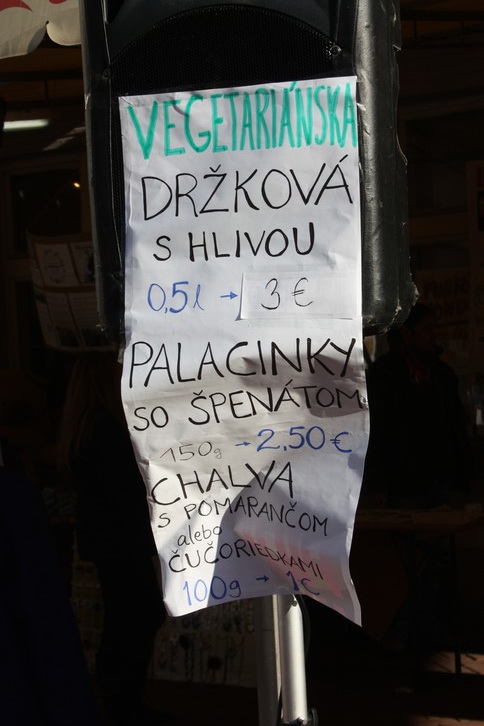 VEGETARIÁNSKA
DRŽKOVÁ
S HLIVOU
0,5l → 3 €
PALACINKY
SO ŠPENÁTOM
150g → 2,50 €
CHALVA
S POMARANČOM
alebo
ČUČORIEDKAMI
100g → 1€